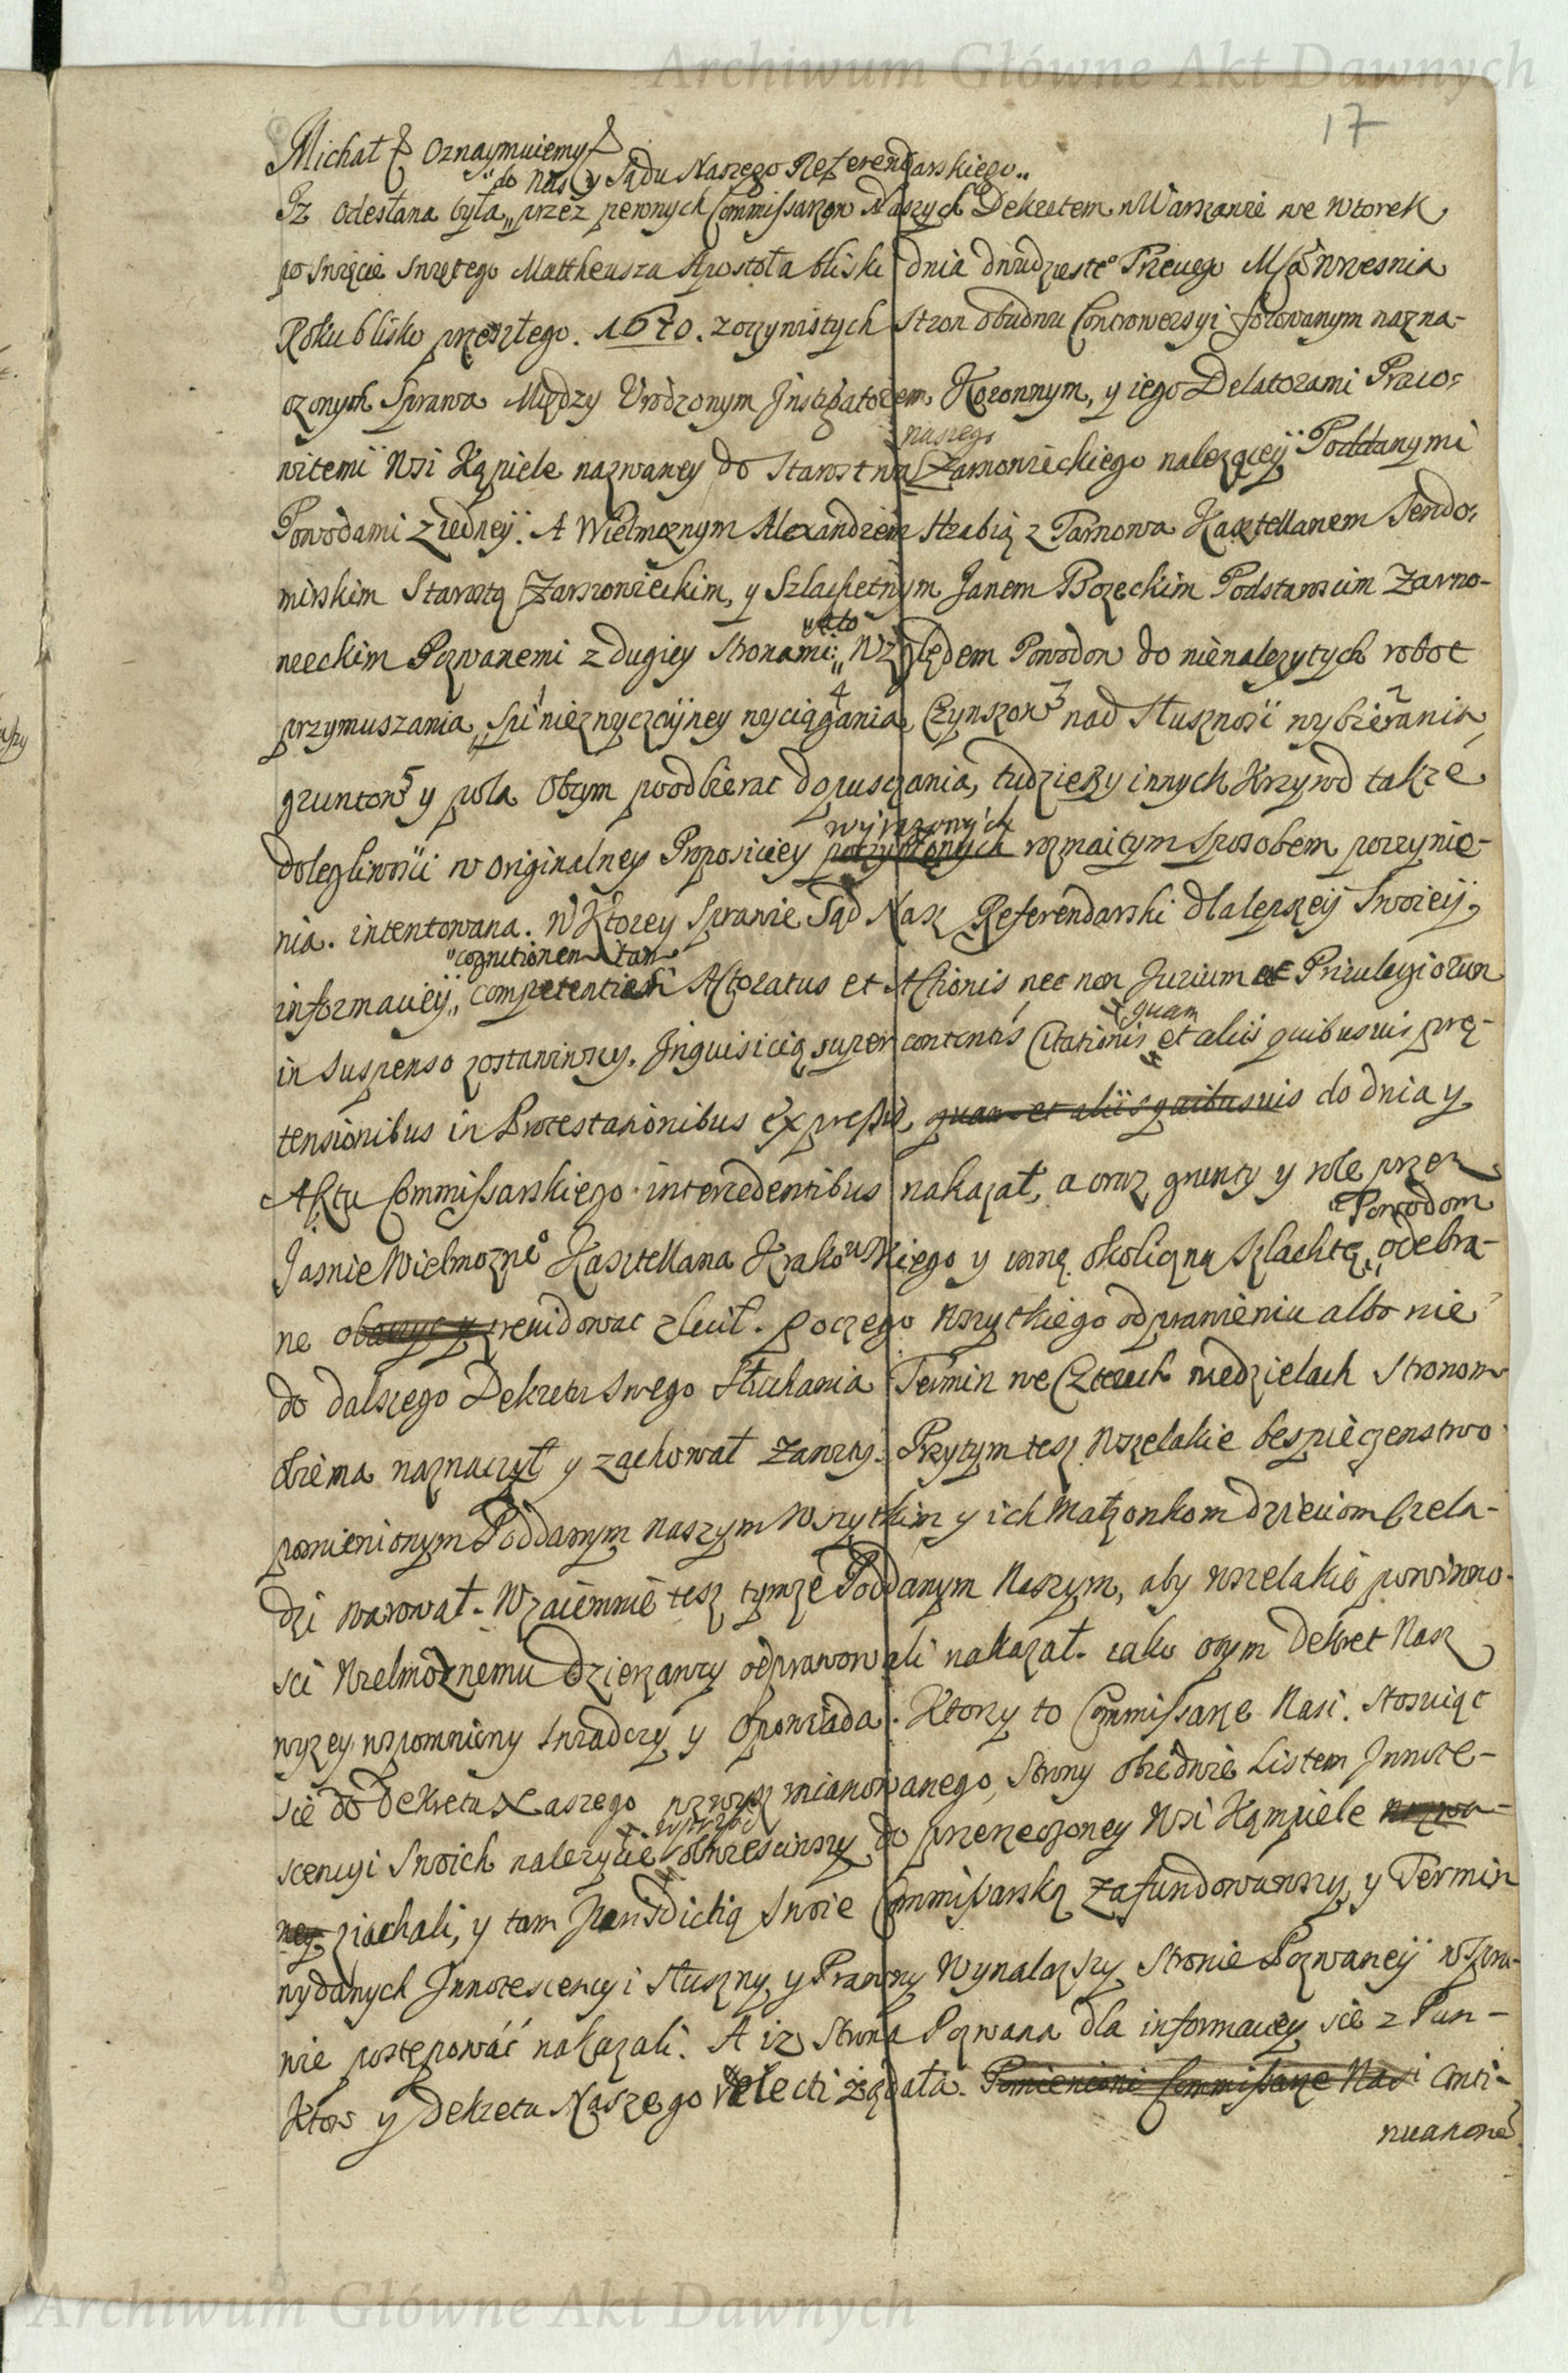 Archiwum Główne Akt Dawnych
17
Michał & Oznaymuiemy
"do Nas y Sądu Naszego Referendarskiego"
Iż odesłana była przez pewnych Commissarzow Naszych Dekretem w Warszawie we Wtorek
po Swięcie Swiętego Mattheusza Apostoła blisko dnia dwudzieste° Trzeciego Mca Wrzesnia
Roku blisko przeszłego. 1670. z oczywistych Stron obudwu Controwersyi ferowanym nazna-
czonych Sprawa Między Urodzonym Instigatorem Koronnym, y iego Delatorami Praco:
naszego
witemi Wsi Kąpiele nazwaney do Starostwa Zarnowieckiego nalezącey Poddanymi
Powodami z iedney. A Wielmoznym Alexandrem Hrabią z Tarnowa Kasztellanem Sendo:
mirskim Starostą Zarnowieckim, y Szlachetnym Janem Bozeckim Podstaroscim Zarno-
"ato
wieckim Pozwanemi z dugiey Stronami: Względem Powodow do nienalezytych robot
przymuszania, Spi niezwyczayney wyciągania 4 Czynszow 3 nad Słusznosci wybierania 2
gruntow 5 y pola Obcym poodbierac dopuszczania, tudziesz y innych Krzywd takze
wyrazonych
dolegliwosci w originalney Proposiciey poczynionych rozmaitym Sposobem poczynie-
nia. intentowana. W Ktorey Sprawie Sąd Nasz Referendarski dla lepszey Swoiey
"cognitionem tam
informaciey, competentiae Actoratus et Actionis nec non Jurium et Privilegiorum
quam
in Suspenso zostawiwszy. Inquisicią super contentis Citationis et aliis quibusuis prę-
tensionibus in Protestationibus expressis, quam et aliis quibusuis do dnia y
Aktu Commissarskiego intercedentibus nakazał, a oraz grunty y role przez
Powodom
Jasnie Wielmozne° Kasztellana Krakowskiego y inną okoliczną Szlachtę, odebra-
ne obaczyc y rewidowac zlecił. Po czego Wszytkiego odprawieniu albo nie
do dalszego Dekretu Swego Słuchania Termin we Czterech niedzielach Stronom
obiema naznaczył y zachował zawity. Przytym tesz Wszelakie bespieczenstwo
pomienionym Poddanym naszym Wszytkim y ich Małzonkom dzieciom Czela-
dzi warował. Wzaiemnie tesz tymze Poddanym Naszym, aby wszelakie powinno-
sci Wielmoznemu Dzierzawcy odprawowali nakazał. iako o tym Dekret Nasz
wyzey wspomniony Swiadczy y Opowiada. Ktorzy to Commissarze Nasi. Stosuiąc
sie do Dekretu Naszego wzwysz mianowanego, Strony obiedwie Listem Innote-
scencyi Swoich nalezycie obwiesciwszy do przerzeczoney Wsi Kąmpiele nazwa-
ney ziachali, y tam Jurisdictią Swoie Commissarską zafundowawszy y Termin
wydanych Innotescencyi Słuszny y Prawny Wynalazszy Stronie Pozwaney w Spra-
wie postępowáć nakazali. A iz Strona Pozwana dla informaciey sie z Pun-
ktow y Dekretu Naszego relecti żądała. Pomienioni Commissarze Nasi Conti-
nuatione
Archiwum Główne Akt Dawnych